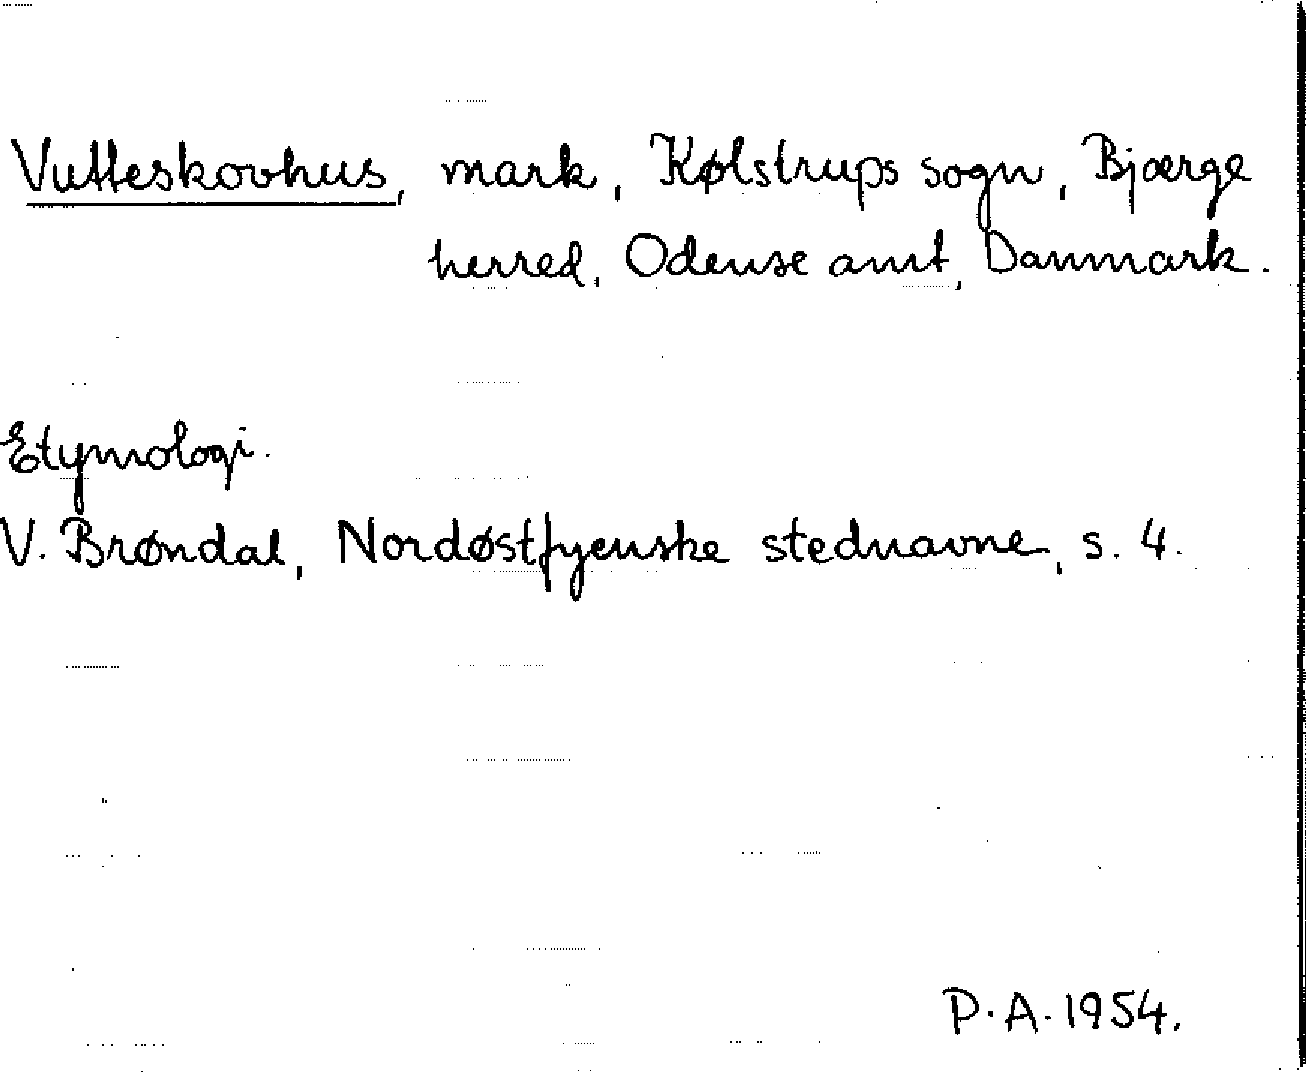 Vutteskovhus, mark, Kølstrups sogn, Bjærge
herred, Odense amt, Danmark.
Etymologi.
V. Brøndal, Nordøstfyenske stednavne, s. 4.
P.A. 1954.